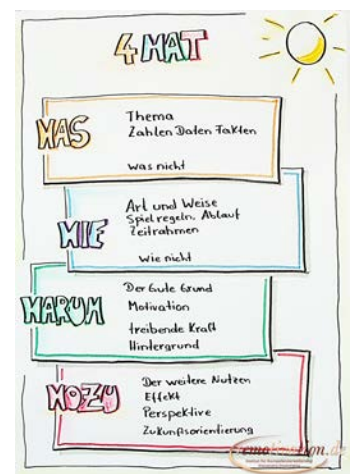 4 MAT
WAS
Thema
Zahlen Daten Fakten
was nicht
WIE
Art und Weise
Spielregeln, Ablauf
Zeitrahmen
wie nicht
WARUM
Der Gute Grund
Motivation
treibende Kraft
Hintergrund
WOZU
Der weitere Nutzen
Effekt
Perspektive
Zukunftsorientierung